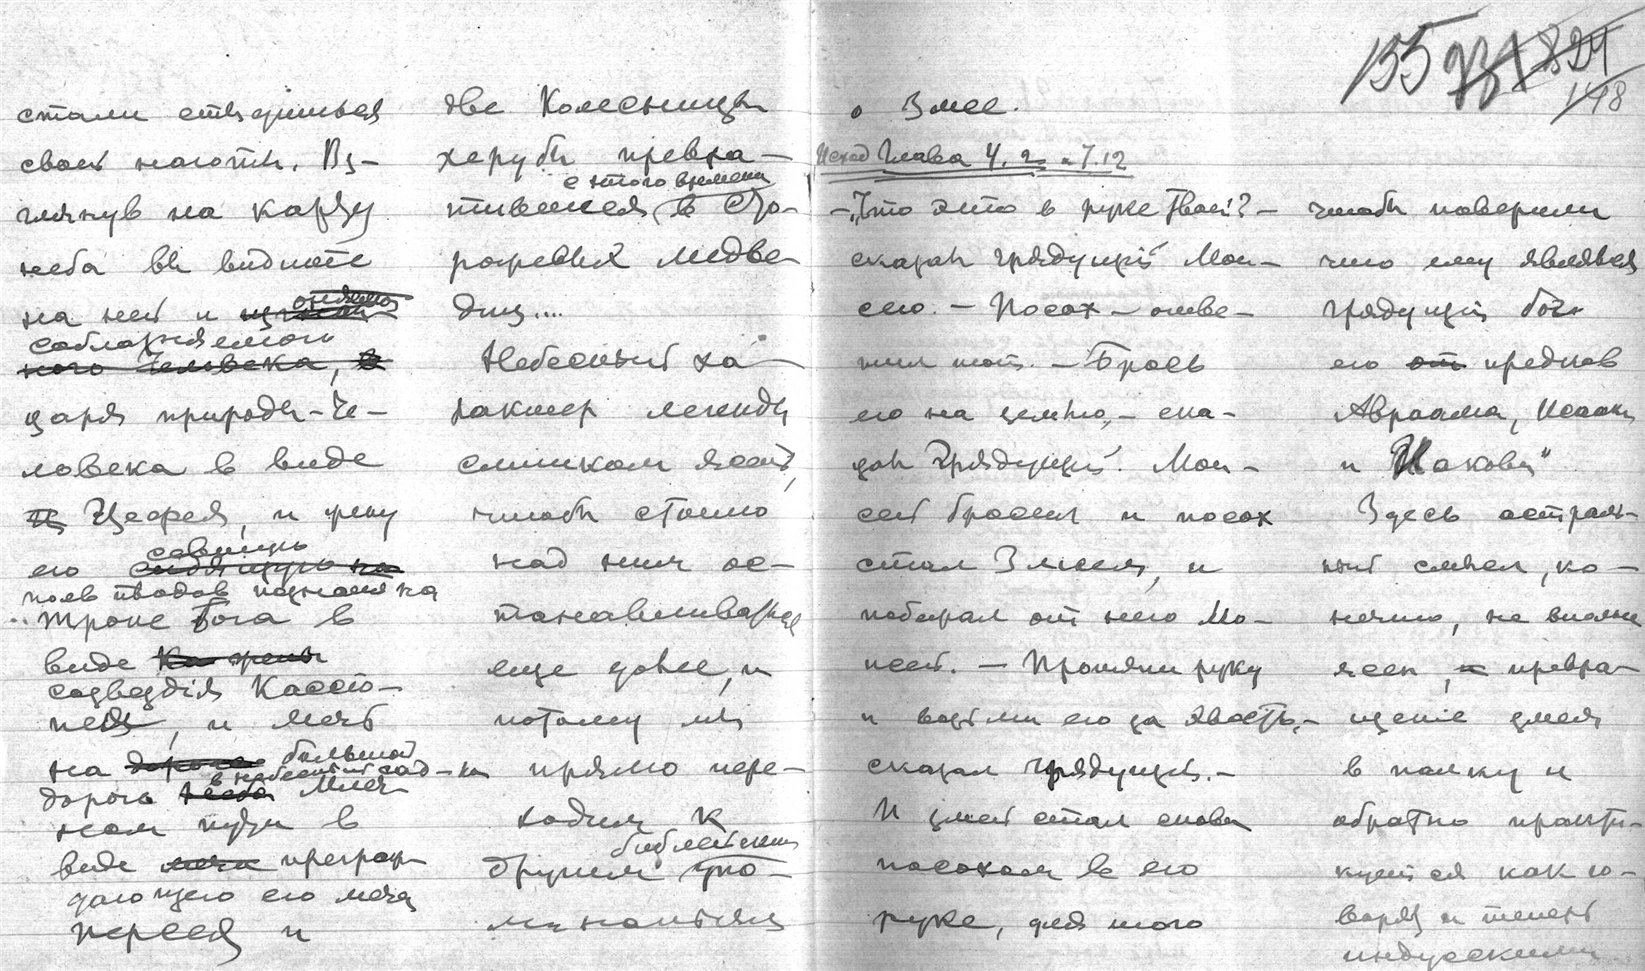 155 731 824
148
стали стыдиться
своей наготы. Вз-
глянув на карту
неба вы видите
на ней и
соблазняемого
царя природы-Че-
ловека в виде
Цефея, и жену
его севшую
на
троне Бога в
виде
созвездія Кассіо-
пеи, и меч
на большой
в небесный сад-
дороге Млеч-
ном пути в
виде преграж-
дающего его меча
Персея и
две Колесницы
херубы превра-
с этого времени
тившиеся в Сто-
рожевых медве-
диц....
Небесный ха-
рактер легенды
слишком ясен,
чтобы стоило
над ним ос-
танавливаться
еще долее, и
потому мы
прямо пере-
ходим к
библейским
другим упо-
минаніям
о Змее.
Исход Глава 4. 2 и 7.12
-„Что это в руке твоей?-
сказал Грядущій Мои-
сею. - Посох - отве-
тил тот. - Брось
его на землю, - ска-
зал Грядущій. Мои-
сей бросил и посох
стал Змеем, и
побежал от него Мо-
исей. - Протяни руку
и возьми его за хвость, -
сказал Грядущій. -
И змей стал снова
посохом в его
руке, для того
чтобы поверили
что ему являлся
Грядущій бог
его предков
Авраама, Исаака
и Иакова"
Здесь астраль-
ный смысл, ко-
нечно, не вполне
ясен, превра-
щеніе змея
в палку и
обратно практи-
куется как ю-
варя и теперь
индусскими